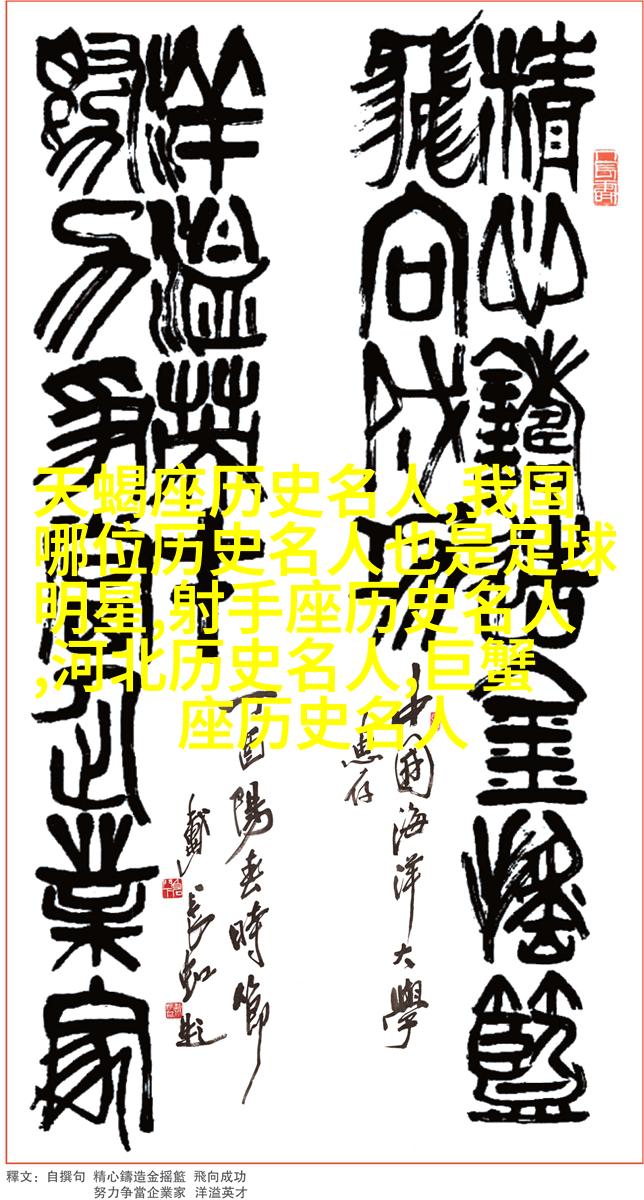 精心鑄造金搖籃
飛向成功
中國海洋大學
惠存
努力爭當企業家
洋溢英才
丁酉陽春時節
戴長虹題
天蝎座历史名人,我国
哪位历史名人也是足球
明星,射手座历史名人
,河北历史名人,巨蟹
座历史名人
釋文：自撰句 精心鑄造金摇籃 飛向成功
努力争當企業家 洋溢英才